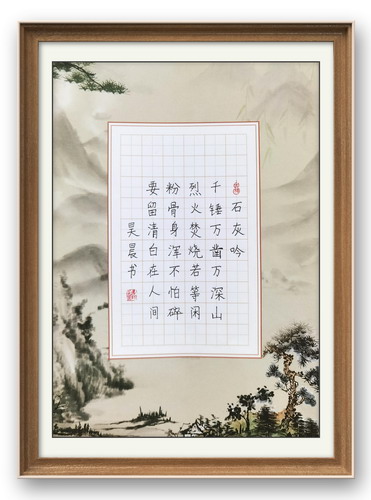 石灰吟
千锤万凿万深山
烈火焚烧若等闲
粉骨身浑不怕碎
要留清白在人间
昊晨书